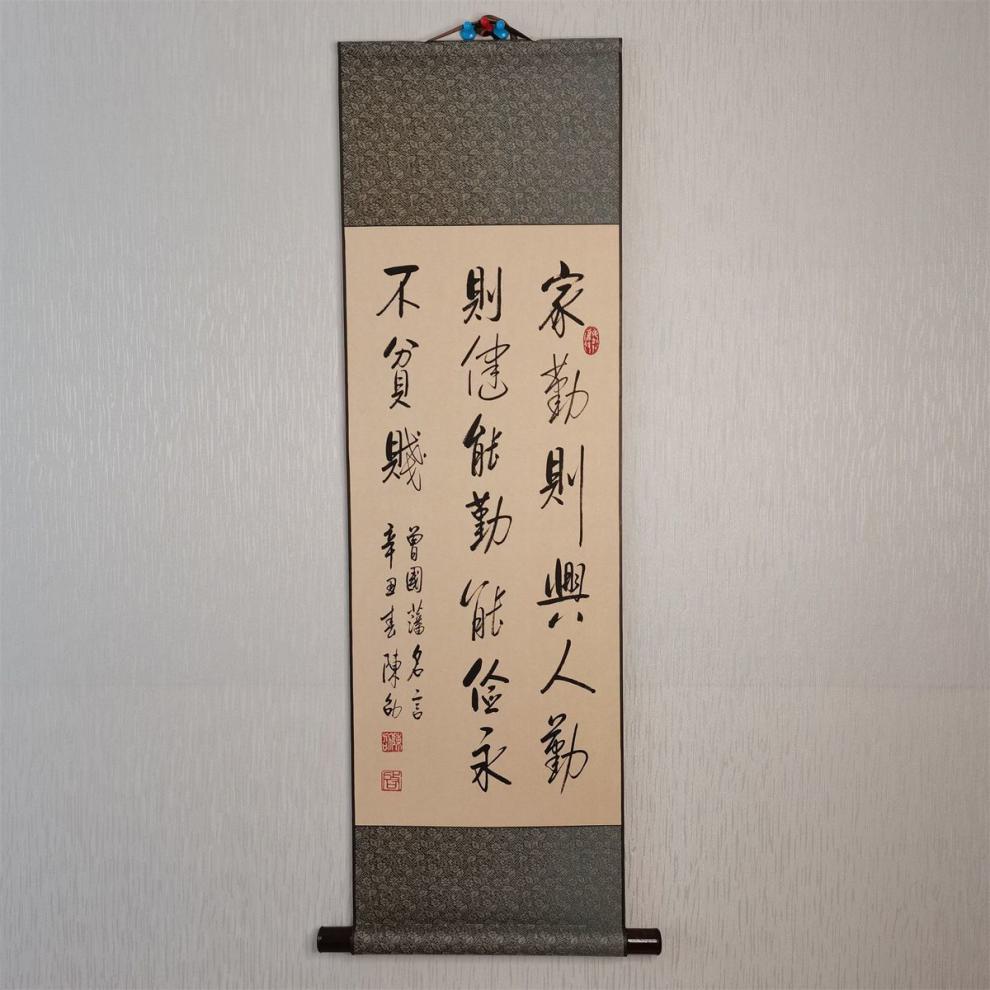 家勤則興人勤
則健能勤能儉永
不貧賤
曾國藩名言
辛丑春陳劭